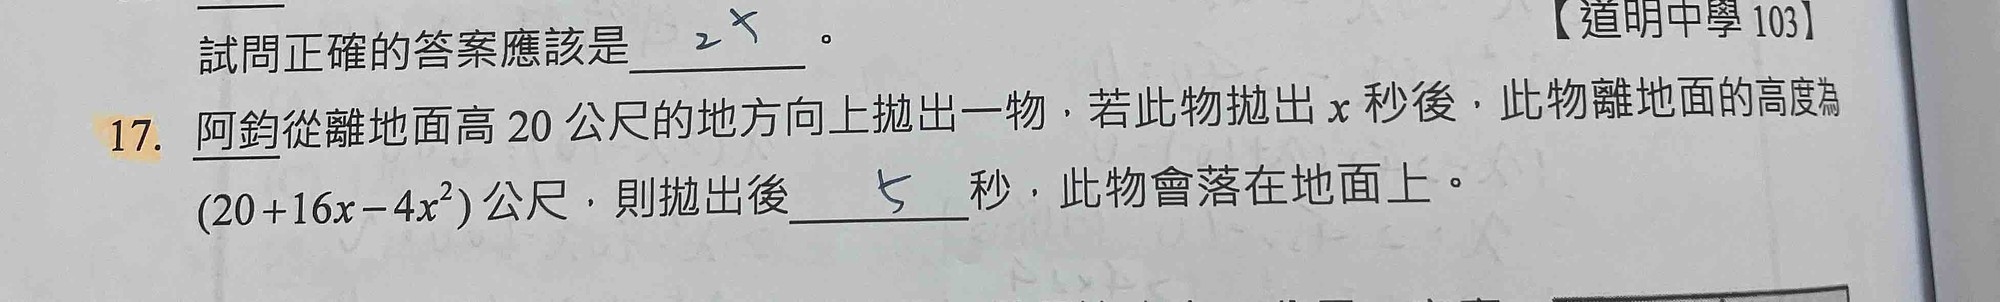 【道明中學 103】
試問正確的答案應該是 2x 。
17. 阿鈞從離地面高 20 公尺的地方向上拋出一物，若此物拋出 x 秒後，此物離地面的高度為
(20+16x−4x²) 公尺，則拋出後 5 秒，此物會落在地面上。